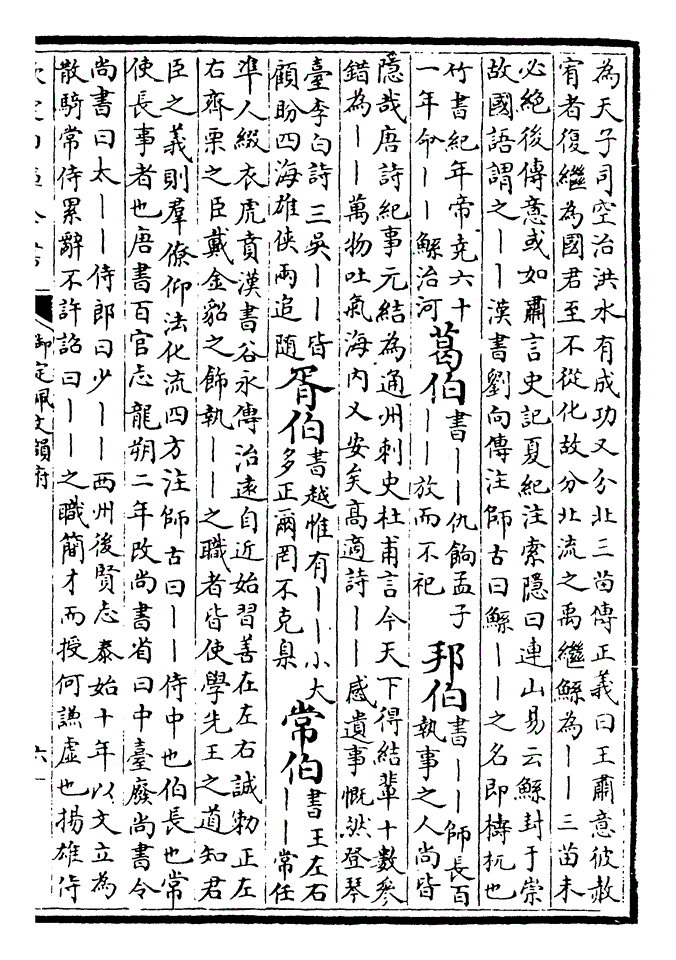 為天子司空治洪水有成功又分北三苗傳正義曰王肅意彼赦
宥者復繼為國君至不從化故分北流之禹繼鯀為||三苗未
必絶後傳意或如肅言史記夏紀注索隱曰連山易云鯀封于崇
故國語謂之||漢書劉向傳注師古曰鯀||之名即檮杌也
竹書紀年帝堯六十
一年命||鯀治河
葛伯
書||仇餉孟子
||放而不祀
邦伯
書||師長百
執事之人尚皆
隱哉唐詩紀事元結為通州刺史杜甫言今天下得結輩十數參
錯為||萬物吐氣海内乂安矣高適詩||感遺事慨然登琴
臺李白詩三吳||皆
顧盼四海雄俠兩追隨
胥伯
書越惟有||小大
多正爾罔不克臬
常伯
書王左右
||常任
凖人綴衣虎賁漢書谷永傳治遠自近始習善在左右誠勅正左
右齊栗之臣戴金貂之飾執||之職者皆使學先王之道知君
臣之義則羣僚仰法化流四方注師古曰||侍中也伯長也常
使長事者也唐書百官志龍朔二年改尚書省曰中臺廢尚書令
尚書曰太||侍郎曰少||西州後賢志泰始十年以文立為
散騎常侍累辭不許詔曰||之職簡才而授何謙虚也揚雄侍
御定佩文韻府
六